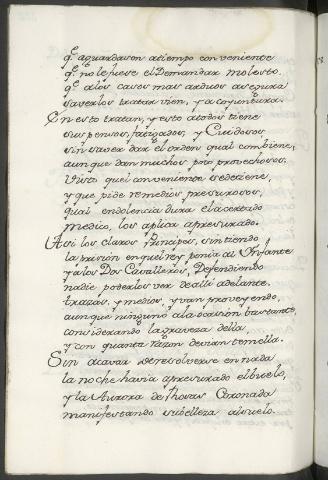 qe aguardason atiempo conveniente
qe nolefuese el Demandar molesto.
qe alos casos mas arduos asegura
saverlos tratar vien, y a coyuntura.
En esto tratan, y esto atodos tiene
suspensos, fatigados, y Cuidosos
sin saver dar el orden qual combiene,
aunque dan muchos pro provechosos.
Visto quel conveniente sedetiene,
y que pide remedios presurosos,
qual endolencia dura el acertado
medico, los aplica apresurado.
Asi los claros Principes, sintiendo
la prision en quel rey ponia al Infante
y alos Dos Cavalleros, Defendiendo
nadie poderlos ver de alli adelante.
trazas, y medios, y van proveyendo,
aunque ninguno ala ocasion bastante,
considerando la graveza della,
y con quanta razon devian temella.
Sin acavar de resolverse en nada
la noche havia apresurado elbuelo,
y la Aurora de Rosas Coronada
manifestando su belleza al suelo.